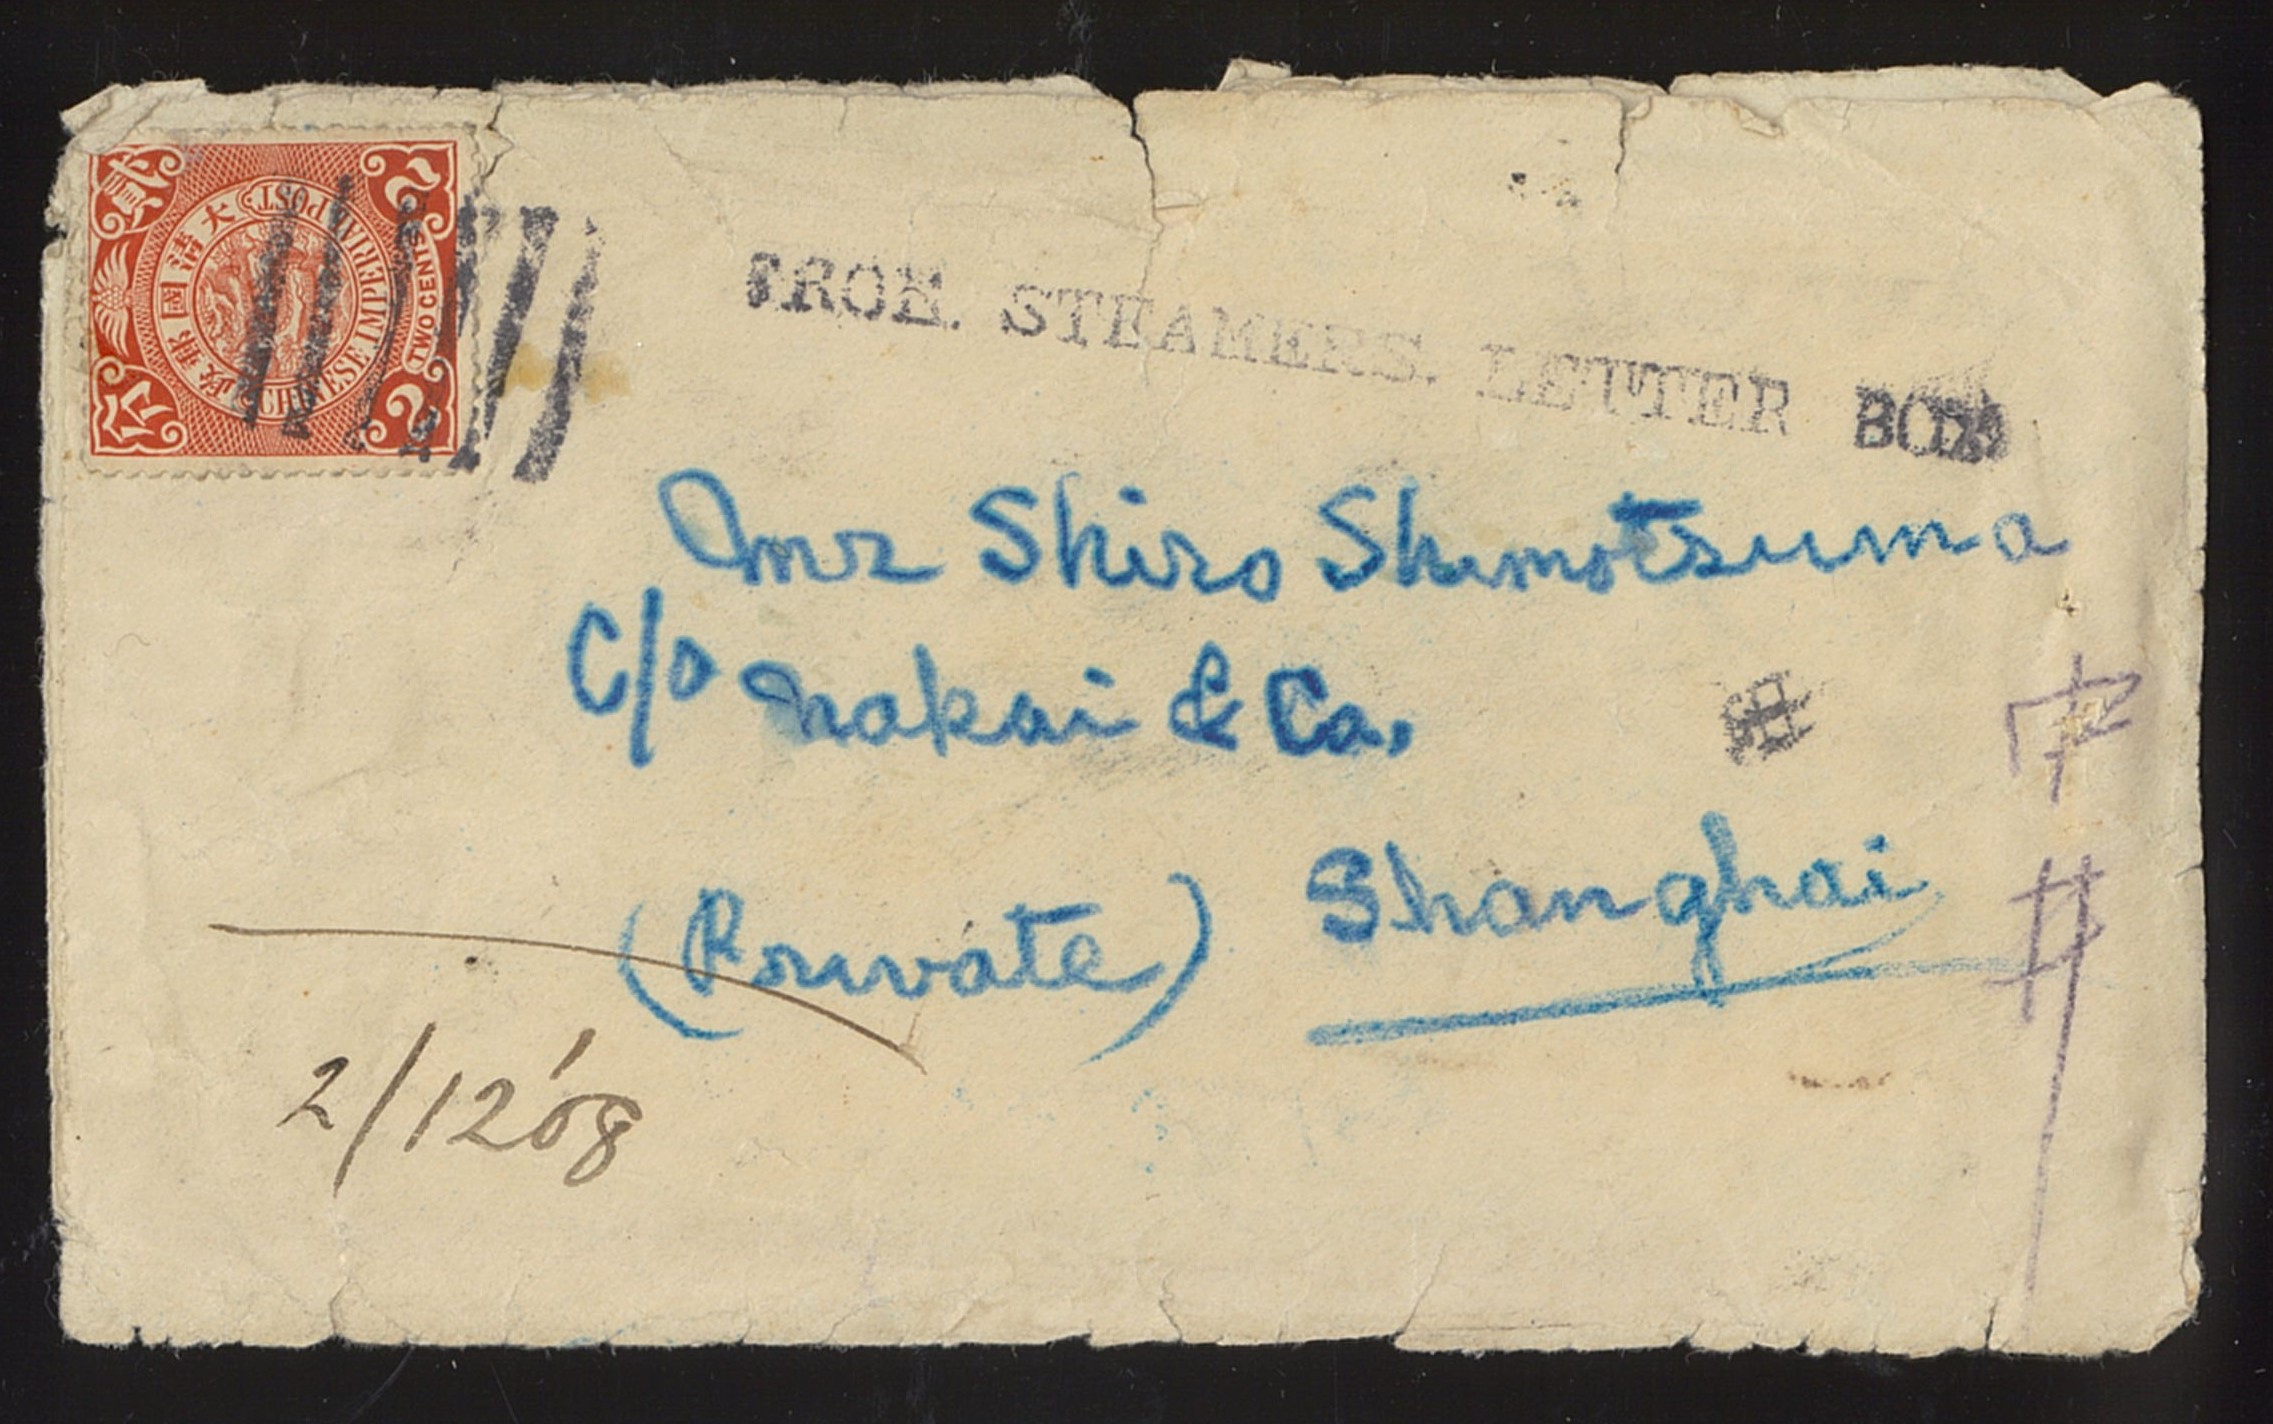 大清國郵政
CHINESE IMPERIAL POST
貳 2
TWO CENTS
分 2
FROM. STEAMERS. LETTER BOX
Mr Shiro Shimotsuma
C/o Nakai & Co.
Shanghai
(Private)
2/12'08